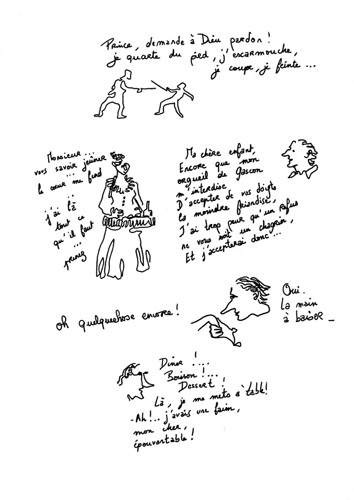 Prince, demande à Dieu pardon !
je quarte du pied, j'escarmouche,
je coupe, je feinte ...
Monsieur ...
vous savoir jeûner
le cœur me fend
j'ai là
tout ce
qu'il faut ...
prenez
Ma chère enfant,
Encore que mon
orgueil de Gascon
m'interdise
D'accepter de vos doigts
la moindre friandise,
J'ai trop peur qu'un refus
ne vous soit un chagrin,
Et j'accepterai donc ...
oh quelquechose encore !
Oui.
La main
à baiser _
Dîner ! ...
Boisson ! ...
Dessert !
Là, je me mets à table !
- Ah ! .. j'avais une faim,
mon cher,
épouvantable !